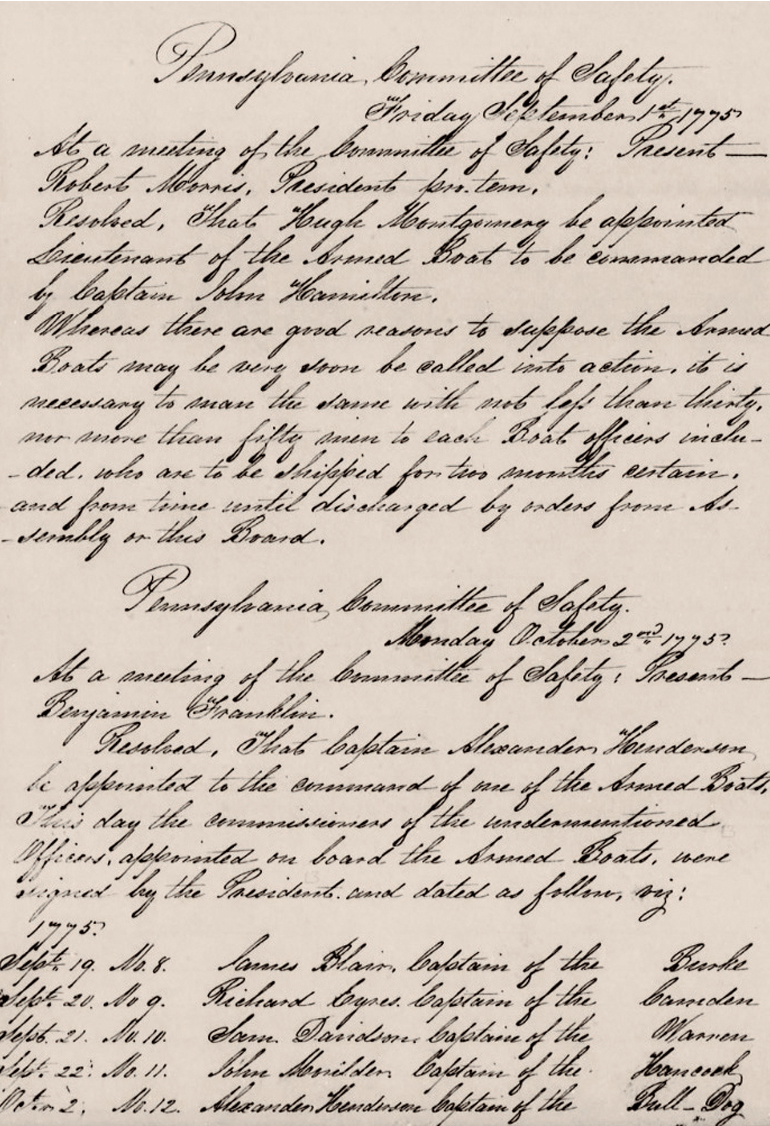 Pennsylvania Committee of Safety.
Friday September 1st 1775
At a meeting of the Committee of Safety: Present —
Robert Morris, President pro. tem.
Resolved, That Hugh Montgomery be appointed
Lieutenant of the Armed Boat to be commanded
by Captain John Hamilton.
Whereas there are good reasons to suppose the Armed
Boats may be very soon be called into action, it is
necessary to man the same with not less than thirty,
nor more than fifty men to each Boat officers inclu-
-ded. who are to be shipped for two months certain.
and from time until discharged by orders from As-
-sembly or this Board.
Pennsylvania Committee of Safety.
Monday October 2nd 1775.
At a meeting of the Committee of Safety: Present —
Benjamin Franklin.
Resolved, That Captain Alexander Henderson
be appointed to the command of one of the Armed Boats.
This day the commissioners of the undermentioned
Officers, appointed on board the Armed Boats, were
signed by the President and dated as follow, viz:
1775.
Sept. 19. No. 8. James Blair, Captain of the Burke
Sept. 20. No 9. Richard Eyres. Captain of the Camden
Sept. 21. No. 10. Sam. Davidson. Captain of the Warren
Sept. 22. No. 11. John Moulder. Captain of the Hancock
Octr. 2. No. 12. Alexander Henderson Captain of the Bull-Dog